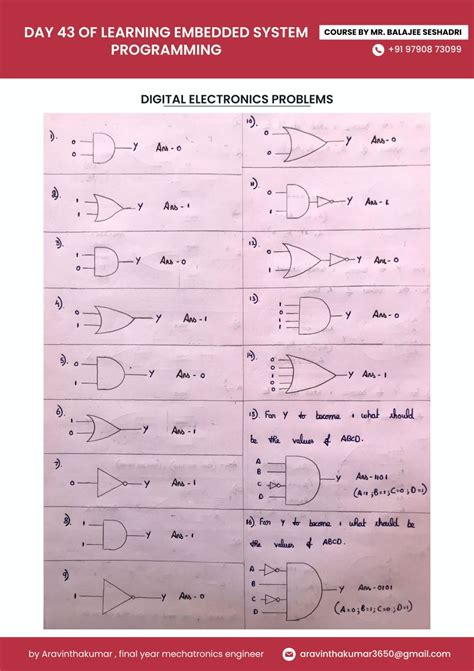 DAY 43 OF LEARNING EMBEDDED SYSTEM
PROGRAMMING
COURSE BY MR. BALAJEE SESHADRI
+91 97908 73099
DIGITAL ELECTRONICS PROBLEMS
1).
0
0
Y Ans - 0
2).
1
1
Y Ans - 1
3).
1
0
Y Ans - 0
4).
1
1
1
Y Ans - 1
5).
0
Y Ans - 0
6).
Y Ans - 1
7).
0
Y Ans - 1
8).
1
1
Y Ans - 1
9)
1
Y Ans - 0
10).
0
0
Y Ans - 0
11).
Y
12).
Y Ans - 0
13)
Y Ans - 0
14).
Y Ans - 1
15) For Y to become 1 what should
be the values of ABCD.
A
B
C
D
Y Ans - 1101
(A=1;B=1;C=0;D=1)
16) For Y to become 1 what should be
the values of ABCD.
A
B
C
D
Y Ans - 0101
(A=0;B=1;C=0;D=1)
by Aravinthakumar , final year mechatronics engineer
aravinthakumar3650@gmail.com